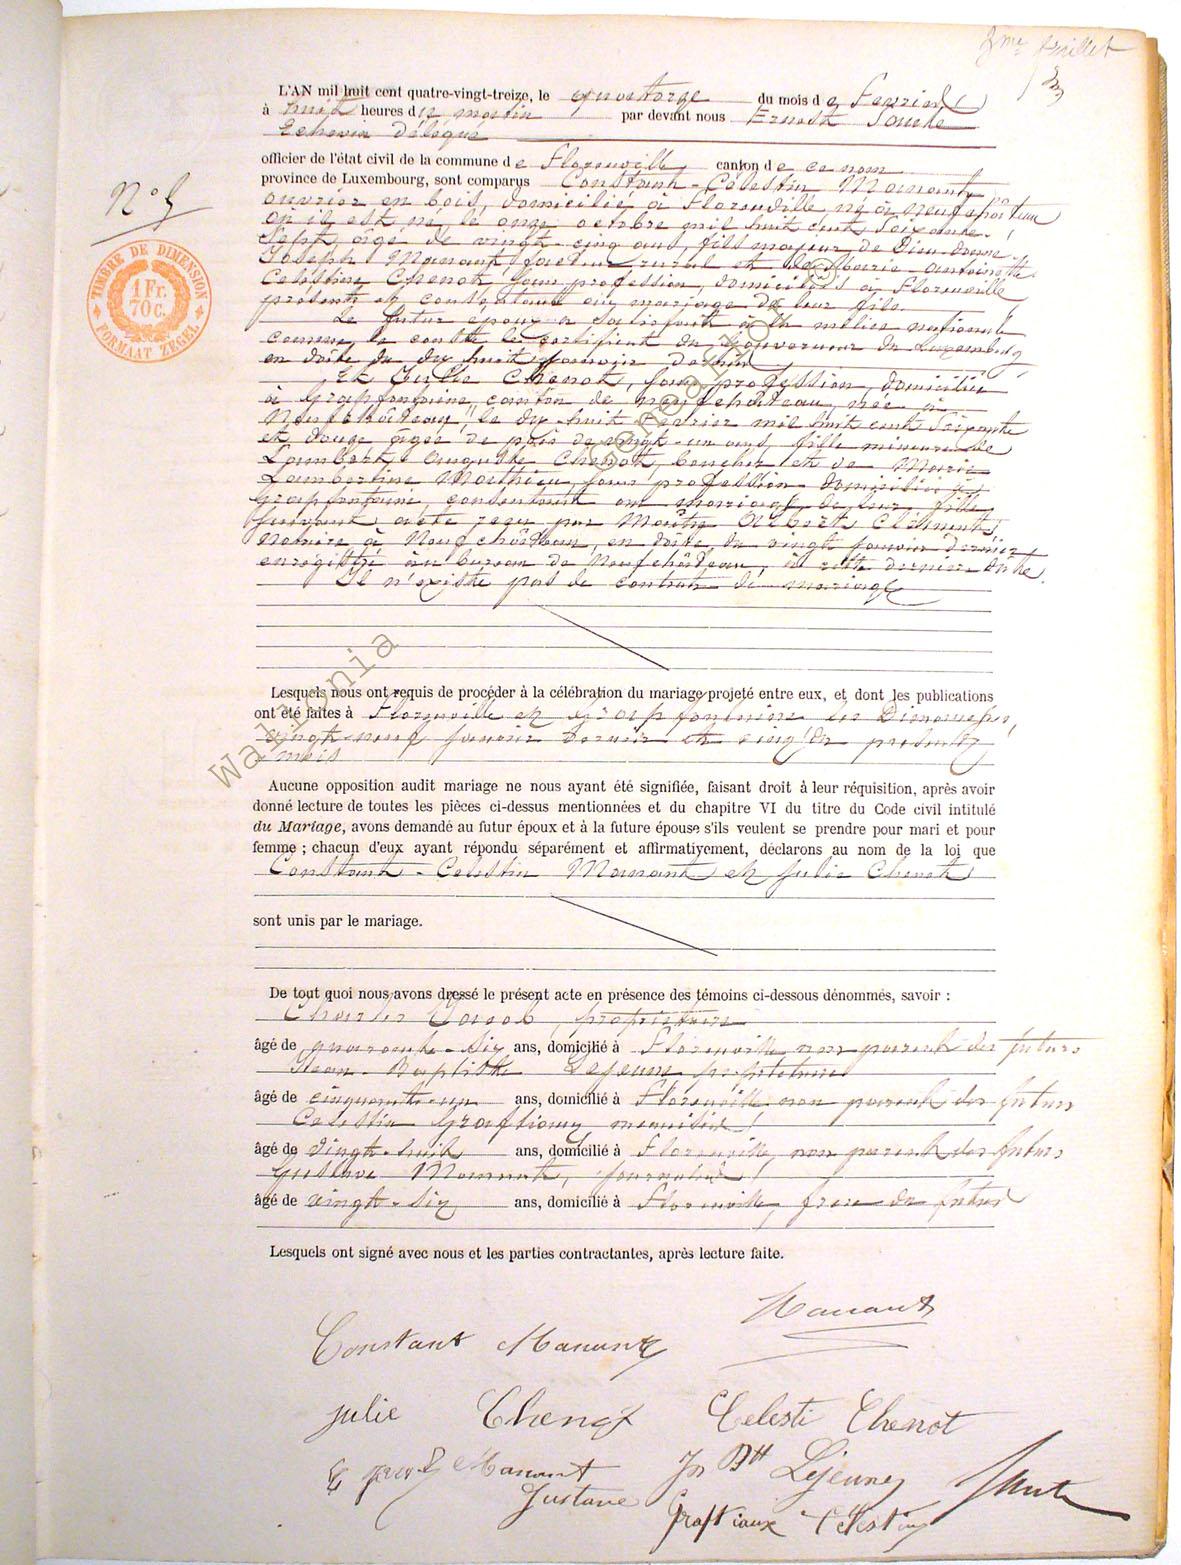 3me feuillet
L'AN mil huit cent quatre-vingt-treize, le quatorze du mois de Fevrier
à huit heures du matin par devant nous Ernest
Echevin délégué
officier de l'état civil de la commune de Florenville canton de ce nom
province de Luxembourg, sont comparus Constant-Célestin Manant,
ouvrier en bois, domicilié à Florenville né à Neufchâteau
où il est né le onze octobre mil huit cent soixante-
sept, âgé de vingt-cinq ans, fils majeur de Dieu-donné
Joseph Manant, facteur rural et de Marie-Antoinette
Celestine Chenot sans profession, domiciliés à Florenville
présents et consentant au mariage de leur fils.
Le futur époux a satisfait à la milice nationale
comme le constate le certificat du Gouverneur du Luxembourg
en date du dix huit janvier dernier
Et Julie Chenot, sans profession, domiciliée
à Grapfontaine, canton de Neufchâteau, née à
Neufchâteau, le dix huit février mil huit cent septante
et douze âgée de près de vingt-un ans, fille mineure de
Lambert-Auguste Chenot, boucher et de Marie
Lambertine Mathieu, sans profession domiciliés à
Grapfontaine, consentant au mariage de leur fille
suivant acte reçu par Maître Albert Clément,
Notaire à Neufchâteau, en date du vingt janvier dernier
enregistré au bureau de Neufchâteau, à cette dernière date.
Il n'existe pas de contrat de mariage
N° 5
TIMBRE DE DIMENSION
1 Fr.
70 c.
FORMAAT ZEGEL
Lesquels nous ont requis de procéder à la célébration du mariage projeté entre eux, et dont les publications
ont été faites à Florenville et Grapfontaine les Dimanches,
vingt-neuf janvier dernier et cinq du présent
mois
Aucune opposition audit mariage ne nous ayant été signifiée, faisant droit à leur réquisition, après avoir
donné lecture de toutes les pièces ci-dessus mentionnées et du chapitre VI du titre du Code civil intitulé
du Mariage, avons demandé au futur époux et à la future épouse s'ils veulent se prendre pour mari et pour
femme ; chacun d'eux ayant répondu séparément et affirmativement, déclarons au nom de la loi que
Constant-Celestin Manant et Julie Chenot
sont unis par le mariage.
De tout quoi nous avons dressé le présent acte en présence des témoins ci-dessous dénommés, savoir :
Charles propriétaire
âgé de quarante-six ans, domicilié à Florenville non parent des futurs
Jean-Baptiste Lejeune propriétaire
âgé de cinquante-un ans, domicilié à Florenville non parent des futurs
Celestin Graftiaux menuisier
âgé de vingt-huit ans, domicilié à Florenville, non parent des futurs
Gustave Manant, journalier
âgé de vingt-six ans, domicilié à Florenville, frère du futur
Lesquels ont signé avec nous et les parties contractantes, après lecture faite.
Manant
Constant Manant
Julie Chenot Celesti Chenot
Manant Jn Btt Lejeune
Gustave
Graftiaux Celestin
Wallonia